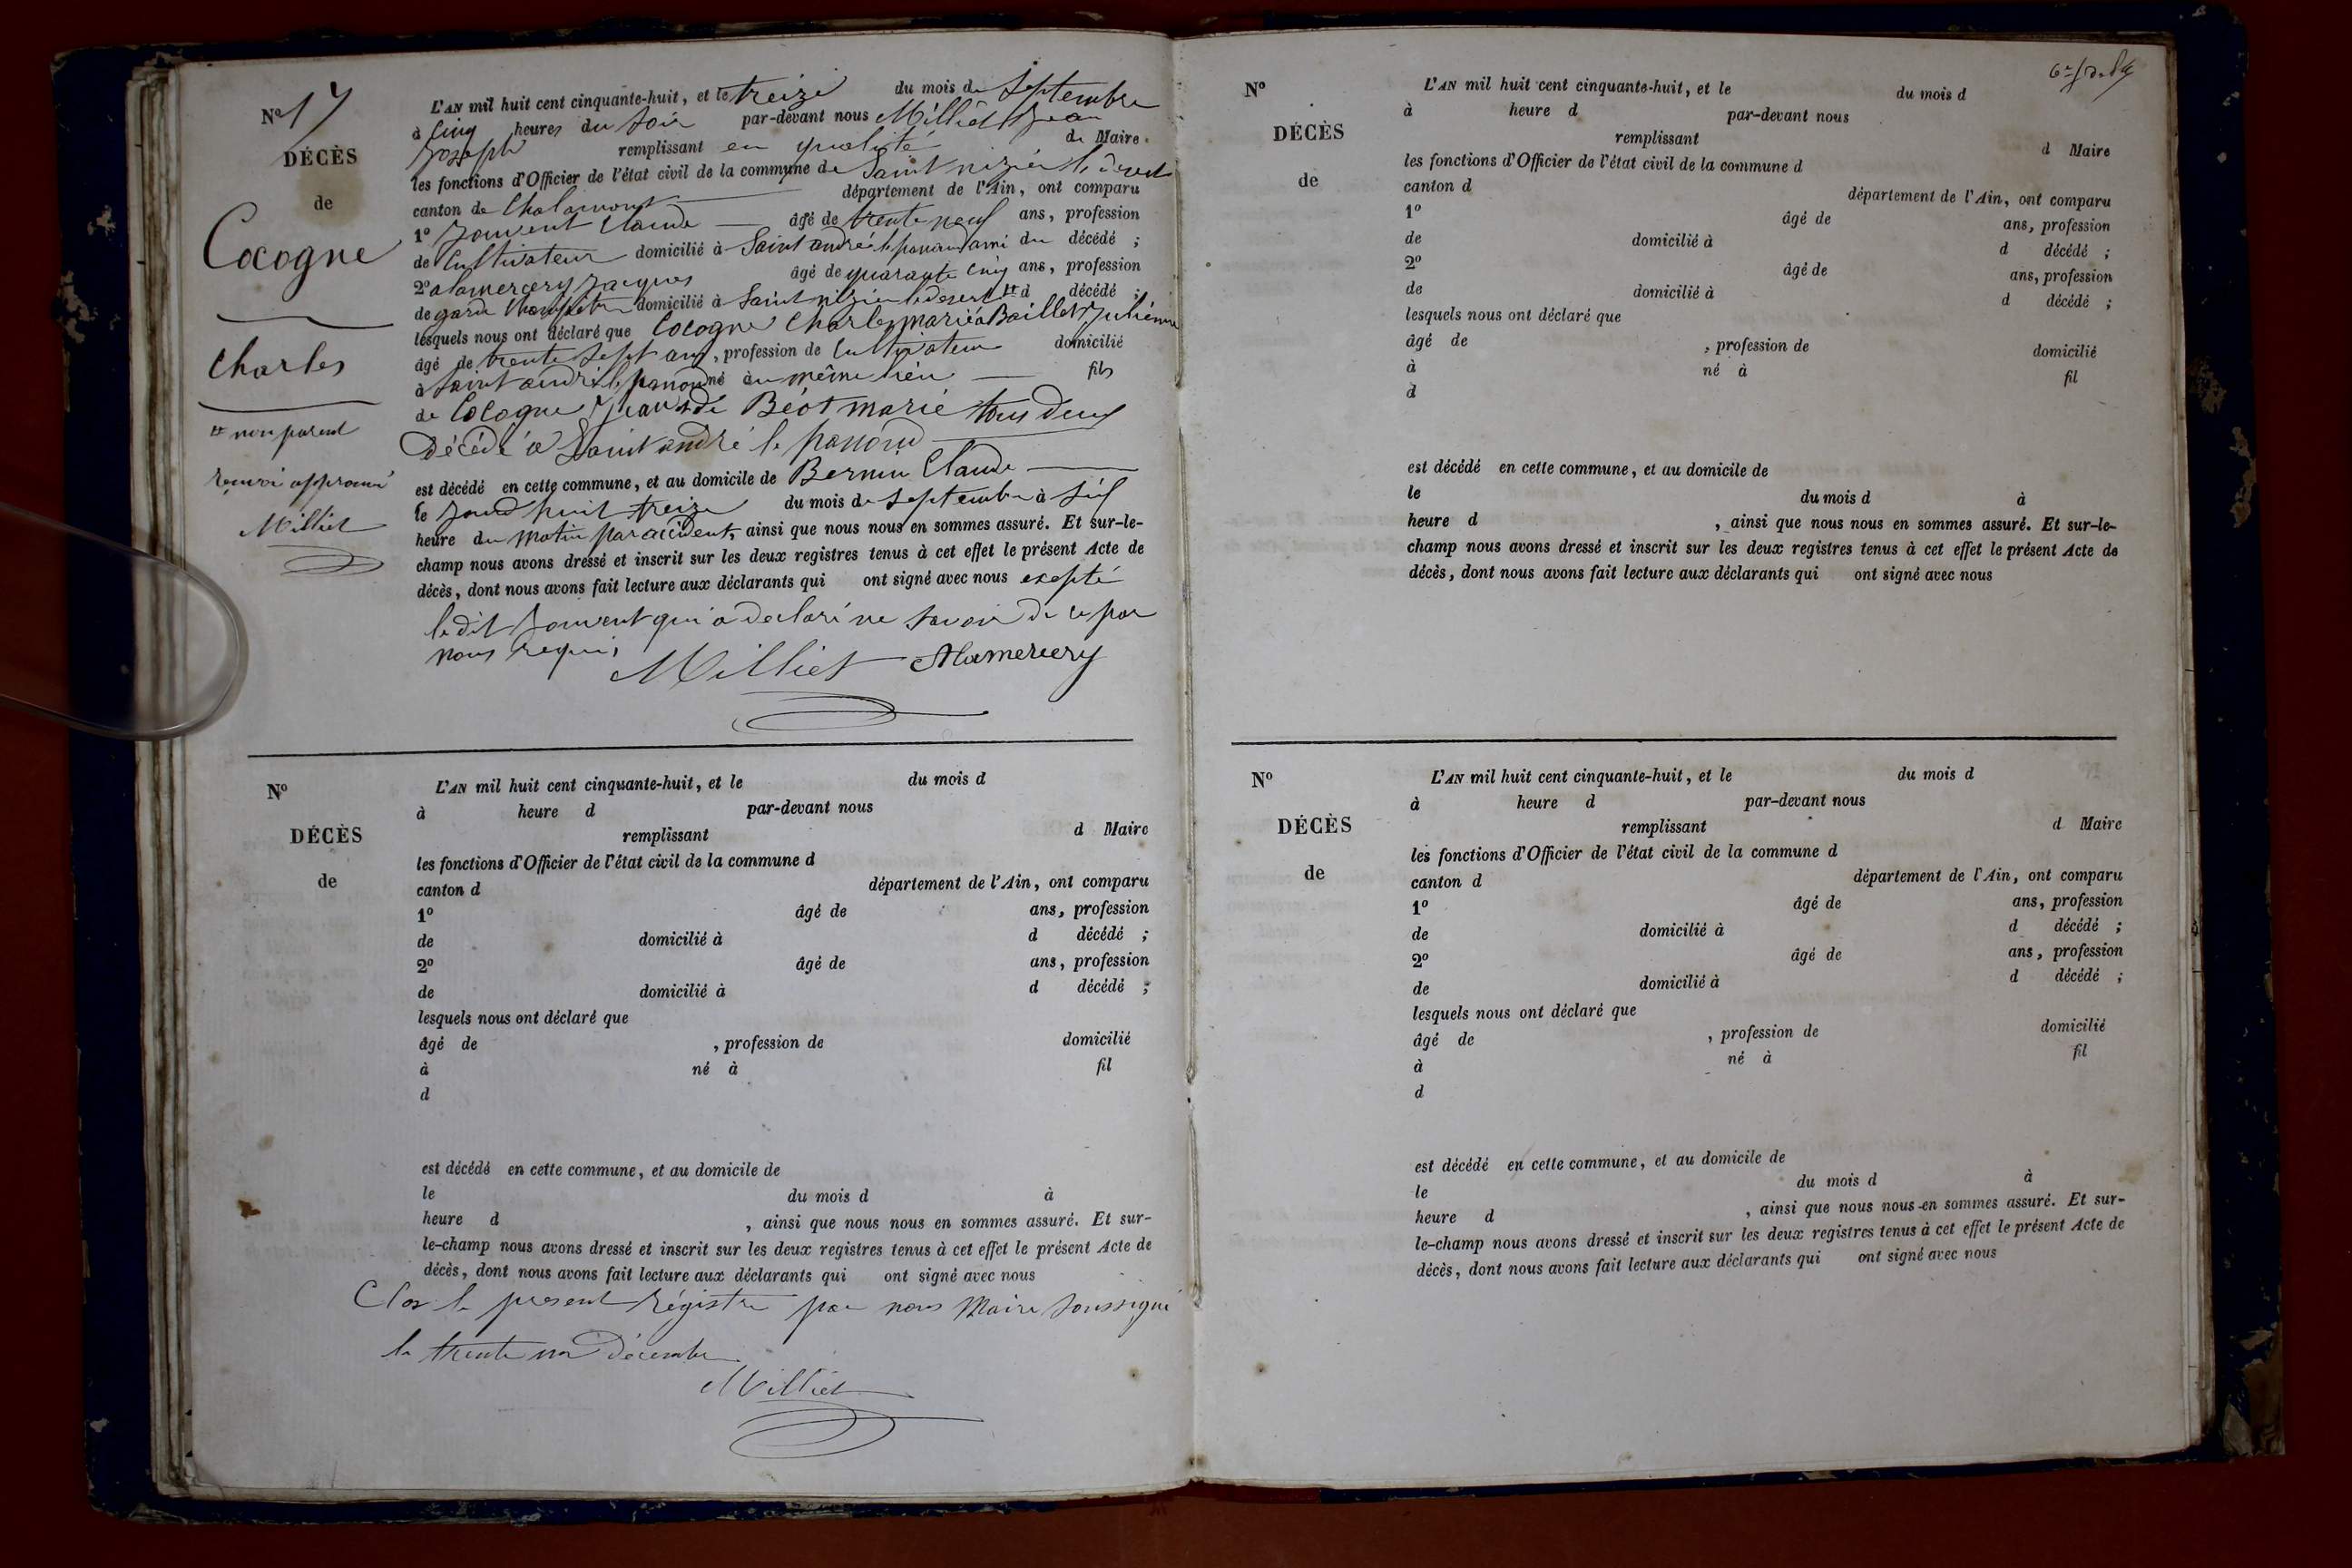 Nº 17
DÉCÈS
de
Cocogne
Charles
non parent
renvoi approuvé
Milliet
L'AN mil huit cent cinquante-huit, et le treize du mois de Septembre
à Cinq heures du soir par-devant nous Milliet Jean
Joseph remplissant en qualité de Maire
les fonctions d'Officier de l'état civil de la commune de Saint nizier le desert
canton de Chalamont département de l'Ain, ont comparu
1º Jouvent Claude âgé de trente neuf ans, profession
de Cultivateur domicilié à Saint andré le panoud ami du décédé ;
2º alamercery Jacques âgé de quarante cinq ans, profession
de garde Champêtre domicilié à Saint nizier le desert d décédé ;
lesquels nous ont déclaré que Cocogne Charles marié à Baillet Julienne
âgé de trente sept ans, profession de Cultivateur domicilié
à Saint andré le panoud né au même lieu fils
de Cocogne Jean & de Béot marie tous deux
Décédé à Saint andré le panoud
est décédé en cette commune, et au domicile de Bernin Claude
le treize du mois de septembre à six
heure du matin par accident, ainsi que nous nous en sommes assuré. Et sur-le-
champ nous avons dressé et inscrit sur les deux registres tenus à cet effet le présent Acte de
décès, dont nous avons fait lecture aux déclarants qui ont signé avec nous excepté
le dit Jouvent qui a declaré ne savoir de ce par
nous requis
Milliet Alamercery
Nº
DÉCÈS
de
L'AN mil huit cent cinquante-huit, et le du mois d
à heure d par-devant nous
remplissant d Maire
les fonctions d'Officier de l'état civil de la commune d
canton d département de l'Ain, ont comparu
1º âgé de ans, profession
de domicilié à d décédé ;
2º âgé de ans, profession
de domicilié à d décédé ;
lesquels nous ont déclaré que
âgé de , profession de domicilié
à né à fil
d
est décédé en cette commune, et au domicile de
le du mois d à
heure d , ainsi que nous nous en sommes assuré. Et sur-
le-champ nous avons dressé et inscrit sur les deux registres tenus à cet effet le présent Acte de
décès, dont nous avons fait lecture aux déclarants qui ont signé avec nous
Clos le present régistre par nous Maire soussigné
le trente un Décembre
Milliet
Nº
DÉCÈS
de
L'AN mil huit cent cinquante-huit, et le du mois d
à heure d par-devant nous
remplissant d Maire
les fonctions d'Officier de l'état civil de la commune d
canton d département de l'Ain, ont comparu
1º âgé de ans, profession
de domicilié à d décédé ;
2º âgé de ans, profession
de domicilié à d décédé ;
lesquels nous ont déclaré que
âgé de , profession de domicilié
à né à fil
d
est décédé en cette commune, et au domicile de
le du mois d à
heure d , ainsi que nous nous en sommes assuré. Et sur-le-
champ nous avons dressé et inscrit sur les deux registres tenus à cet effet le présent Acte de
décès, dont nous avons fait lecture aux déclarants qui ont signé avec nous
Nº
DÉCÈS
de
L'AN mil huit cent cinquante-huit, et le du mois d
à heure d par-devant nous
remplissant d Maire
les fonctions d'Officier de l'état civil de la commune d
canton d département de l'Ain, ont comparu
1º âgé de ans, profession
de domicilié à d décédé ;
2º âgé de ans, profession
de domicilié à d décédé ;
lesquels nous ont déclaré que
âgé de , profession de domicilié
à né à fil
d
est décédé en cette commune, et au domicile de
le du mois d à
heure d , ainsi que nous nous en sommes assuré. Et sur-
le-champ nous avons dressé et inscrit sur les deux registres tenus à cet effet le présent Acte de
décès, dont nous avons fait lecture aux déclarants qui ont signé avec nous